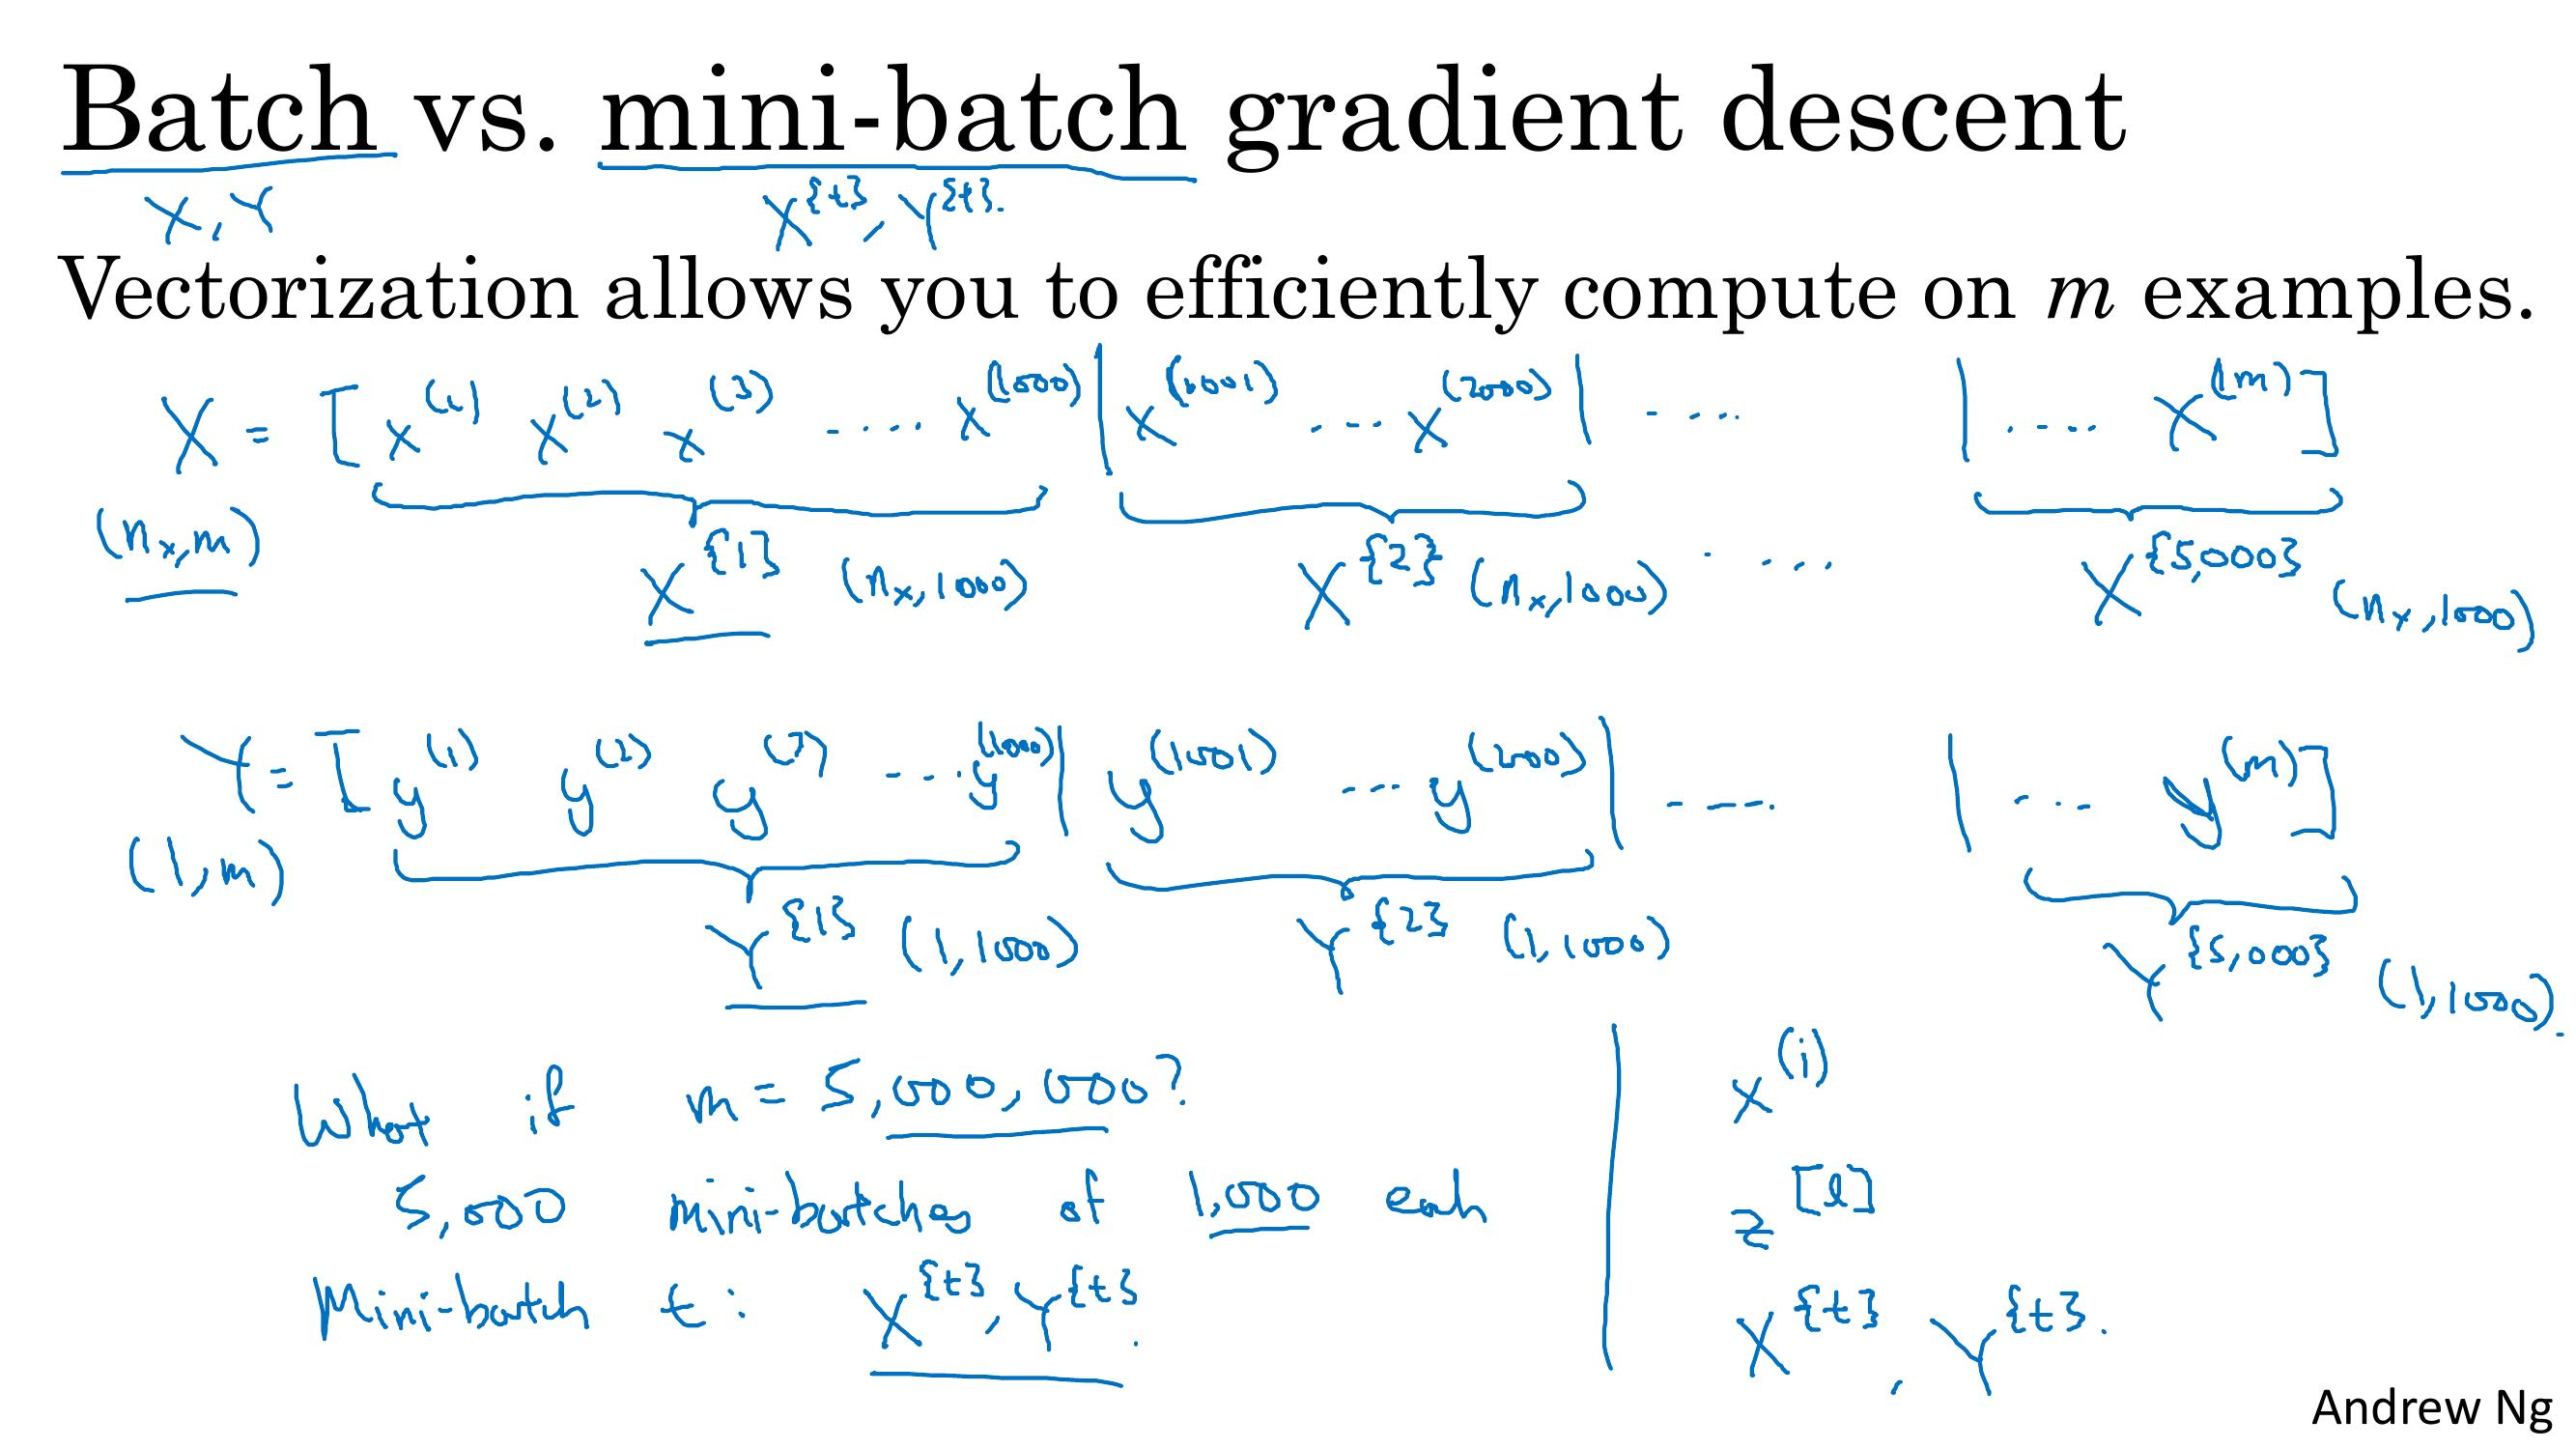 Batch vs. mini-batch gradient descent
X, Y X^{t}, Y^{t}.
Vectorization allows you to efficiently compute on m examples.
X = [ x^(1) x^(2) x^(3) ..... x^(1000) | x^(1001) .... x^(2000) | ..... | ..... x^(m) ]
(n_x, m) X^{1} (n_x, 1000) X^{2} (n_x, 1000) .... X^{5,000} (n_x, 1000)
Y = [ y^(1) y^(2) y^(3) ... y^(1000) | y^(1001) ... y^(2000) | ---- | ... y^(m) ]
(1, m) Y^{1} (1, 1000) Y^{2} (1, 1000) Y^{5,000} (1, 1000).
What if m = 5,000,000?
5,000 mini-batches of 1,000 each
Mini-batch t: X^{t}, Y^{t}.
x^(i)
z^[l]
X^{t}, Y^{t}.
Andrew Ng